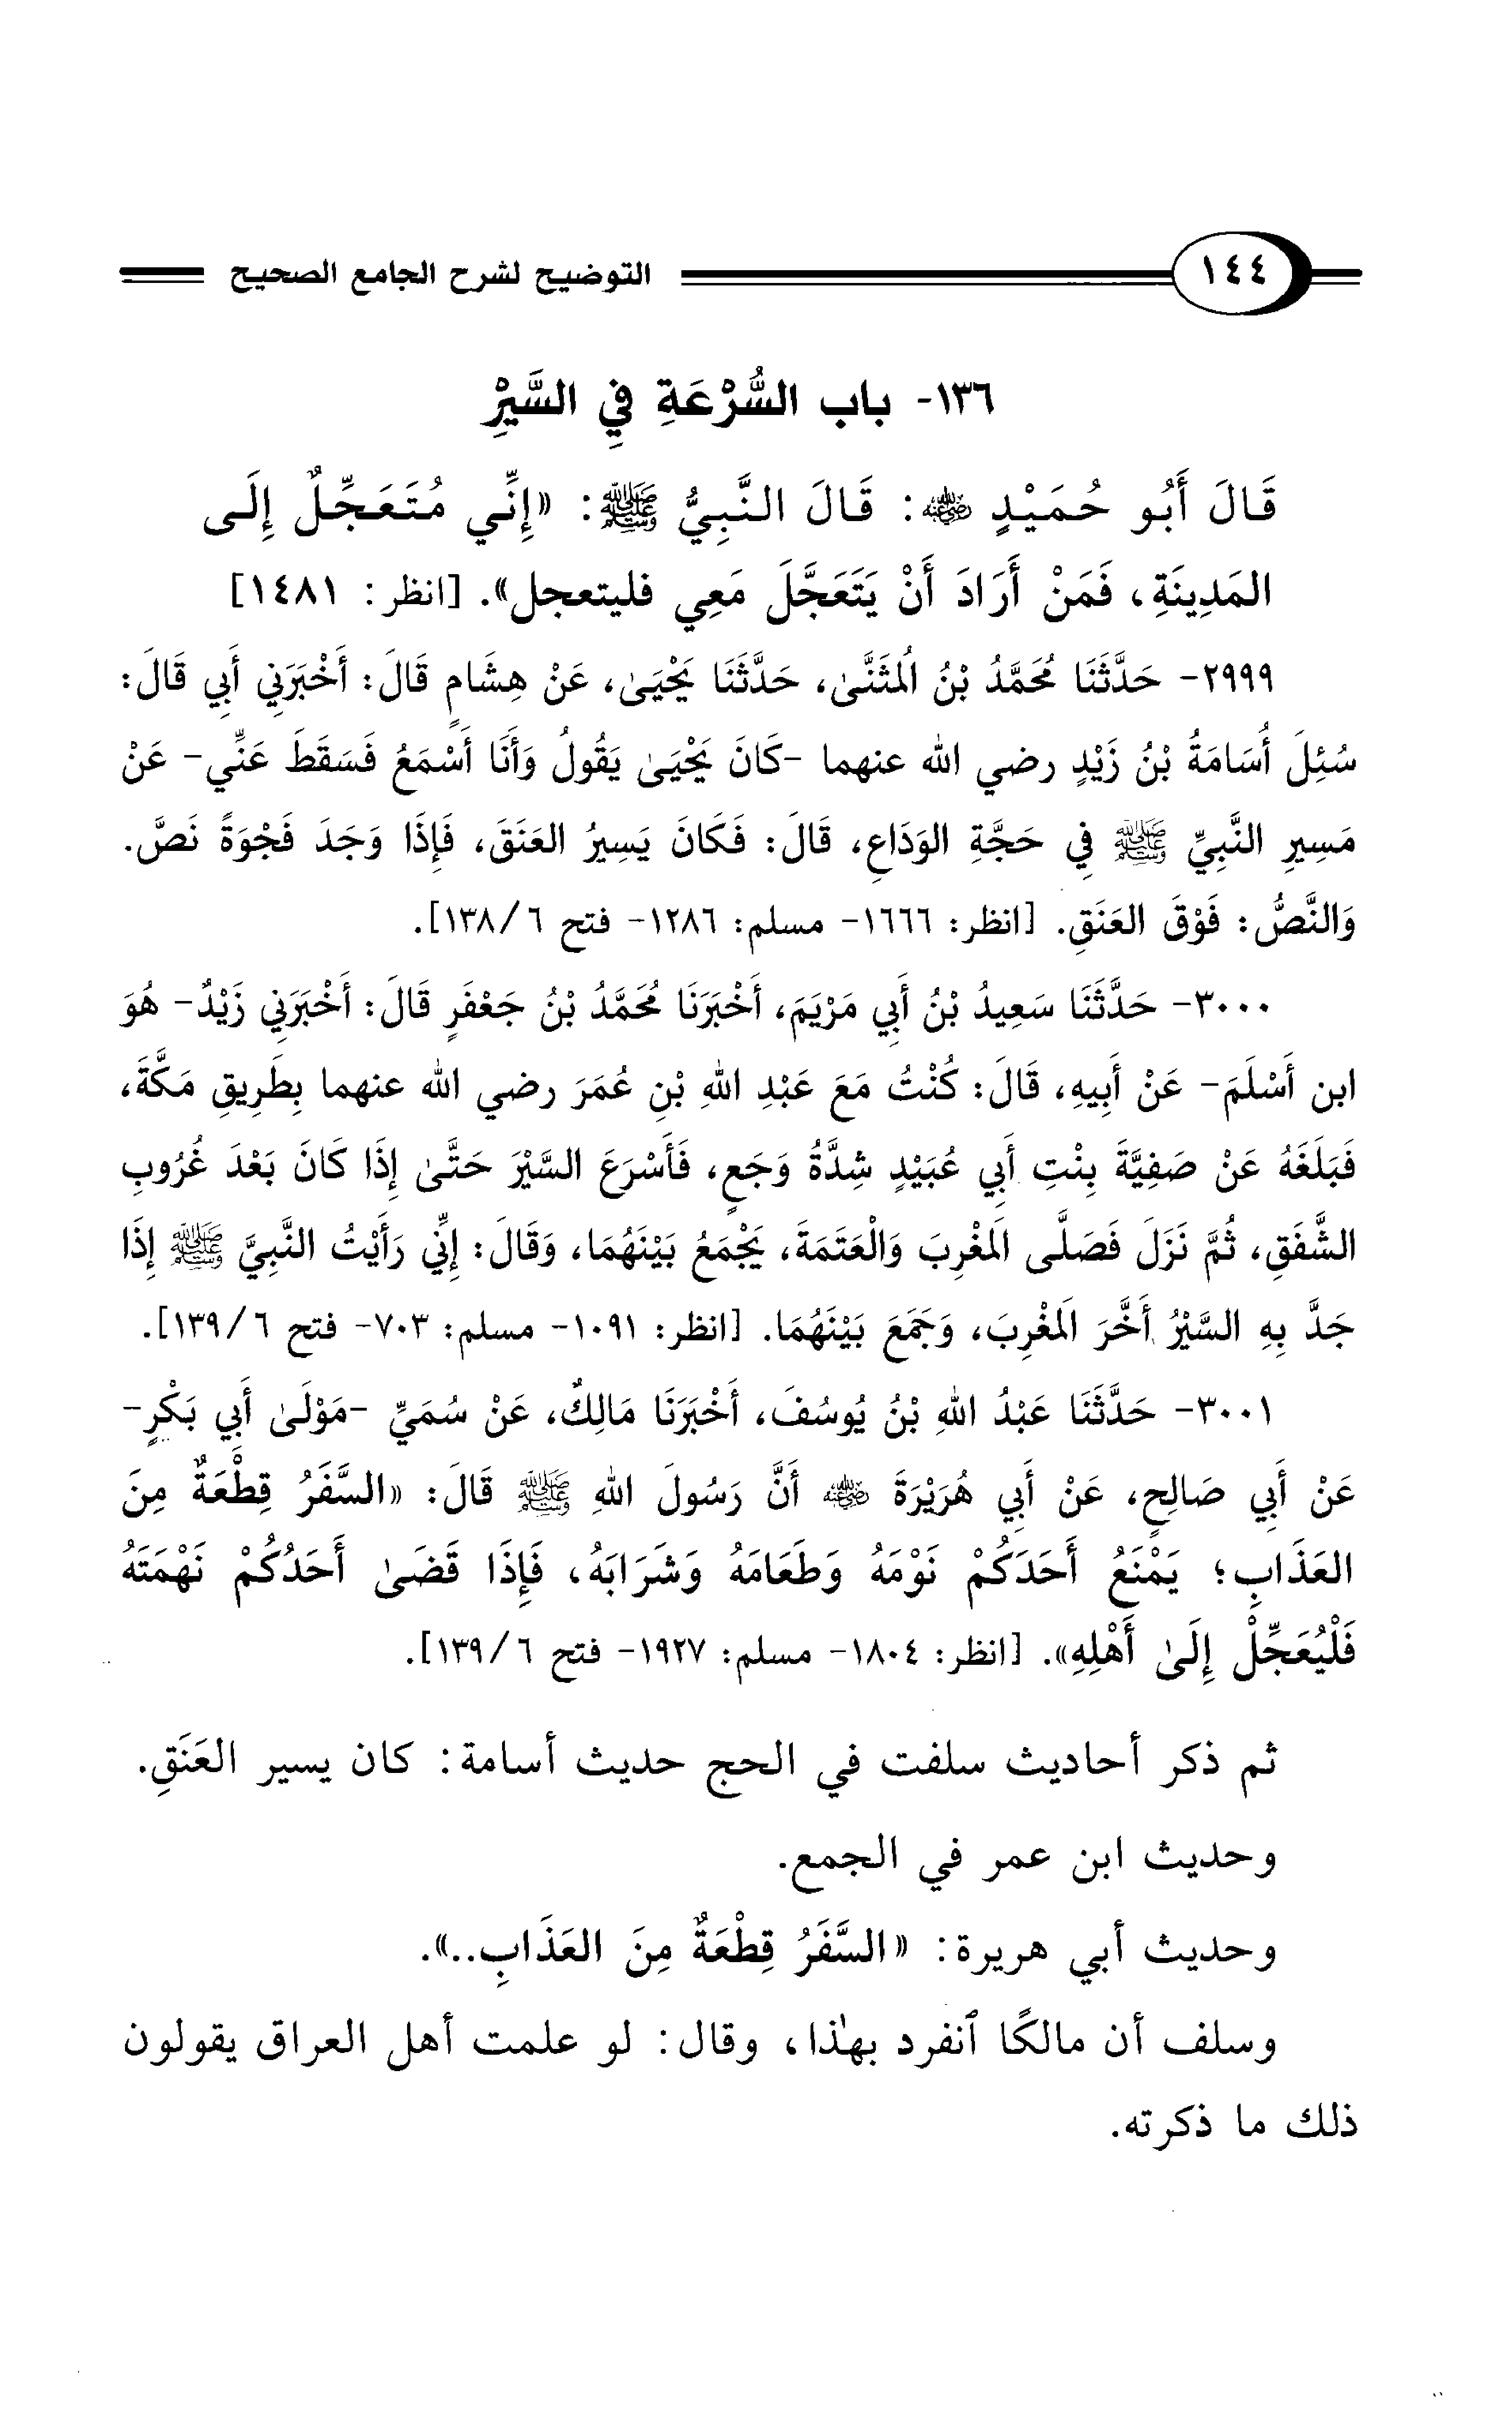 ١٤٤ التوضيح لشرح الجامع الصحيح
١٣٦- باب السُّرْعَةِ فِي السَّيْرِ
قَالَ أَبُو حُمَيْدٍ ﵁: قَالَ النَّبِيُّ ﷺ: «إِنِّي مُتَعَجِّلٌ إِلَى
المَدِينَةِ، فَمَنْ أَرَادَ أَنْ يَتَعَجَّلَ مَعِي فليتعجل». [انظر: ١٤٨١]
٢٩٩٩- حَدَّثَنَا مُحَمَّدُ بْنُ الُمثَنَّىٰ، حَدَّثَنَا يَحْيَىٰ، عَنْ هِشَامٍ قَالَ: أَخْبَرَنِي أَبِي قَالَ:
سُئِلَ أُسَامَةُ بْنُ زَيْدٍ رضي الله عنهما -كَانَ يَحْيَىٰ يَقُولُ وَأَنَا أَسْمَعُ فَسَقَطَ عَنِّي- عَنْ
مَسِيرِ النَّبِيِّ ﷺ فِي حَجَّةِ الوَدَاعِ، قَالَ: فَكَانَ يَسِيرُ العَنَقَ، فَإِذَا وَجَدَ فَجْوَةً نَصَّ.
وَالنَّصُّ: فَوْقَ العَنَقِ. [انظر: ١٦٦٦- مسلم: ١٢٨٦- فتح ٦/١٣٨].
٣٠٠٠- حَدَّثَنَا سَعِيدُ بْنُ أَبِي مَرْيَمَ، أَخْبَرَنَا مُحَمَّدُ بْنُ جَعْفَرٍ قَالَ: أَخْبَرَنِي زَيْدٌ- هُوَ
ابن أَسْلَمَ- عَنْ أَبِيهِ، قَالَ: كُنْتُ مَعَ عَبْدِ اللهِ بْنِ عُمَرَ رضي الله عنهما بِطَرِيقِ مَكَّةَ،
فَبَلَغَهُ عَنْ صَفِيَّةَ بِنْتِ أَبِي عُبَيْدٍ شِدَّةُ وَجَعٍ، فَأَسْرَعَ السَّيْرَ حَتَّىٰ إِذَا كَانَ بَعْدَ غُرُوبِ
الشَّفَقِ، ثُمَّ نَزَلَ فَصَلَّى الَمغْرِبَ وَالْعَتَمَةَ، يَجْمَعُ بَيْنَهُمَا، وَقَالَ: إِنِّي رَأَيْتُ النَّبِيَّ ﷺ إِذَا
جَدَّ بِهِ السَّيْرُ أَخَّرَ الَمغْرِبَ، وَجَمَعَ بَيْنَهُمَا. [انظر: ١٠٩١- مسلم: ٧٠٣- فتح ٦/١٣٩].
٣٠٠١- حَدَّثَنَا عَبْدُ اللهِ بْنُ يُوسُفَ، أَخْبَرَنَا مَالِكٌ، عَنْ سُمَيٍّ -مَوْلَىٰ أَبِي بَكْرٍ-
عَنْ أَبِي صَالِحٍ، عَنْ أَبِي هُرَيْرَةَ ﵁ أَنَّ رَسُولَ اللهِ ﷺ قَالَ: «السَّفَرُ قِطْعَةٌ مِنَ
العَذَابِ؛ يَمْنَعُ أَحَدَكُمْ نَوْمَهُ وَطَعَامَهُ وَشَرَابَهُ، فَإِذَا قَضَىٰ أَحَدُكُمْ نَهْمَتَهُ
فَلْيُعَجِّلْ إِلَىٰ أَهْلِهِ». [انظر: ١٨٠٤- مسلم: ١٩٢٧- فتح ٦/١٣٩].
ثم ذكر أحاديث سلفت في الحج حديث أسامة: كان يسير العَنَقِ.
وحديث ابن عمر في الجمع.
وحديث أبي هريرة: «السَّفَرُ قِطْعَةٌ مِنَ العَذَابِ..».
وسلف أن مالكًا ٱنفرد بهٰذا، وقال: لو علمت أهل العراق يقولون
ذلك ما ذكرته.